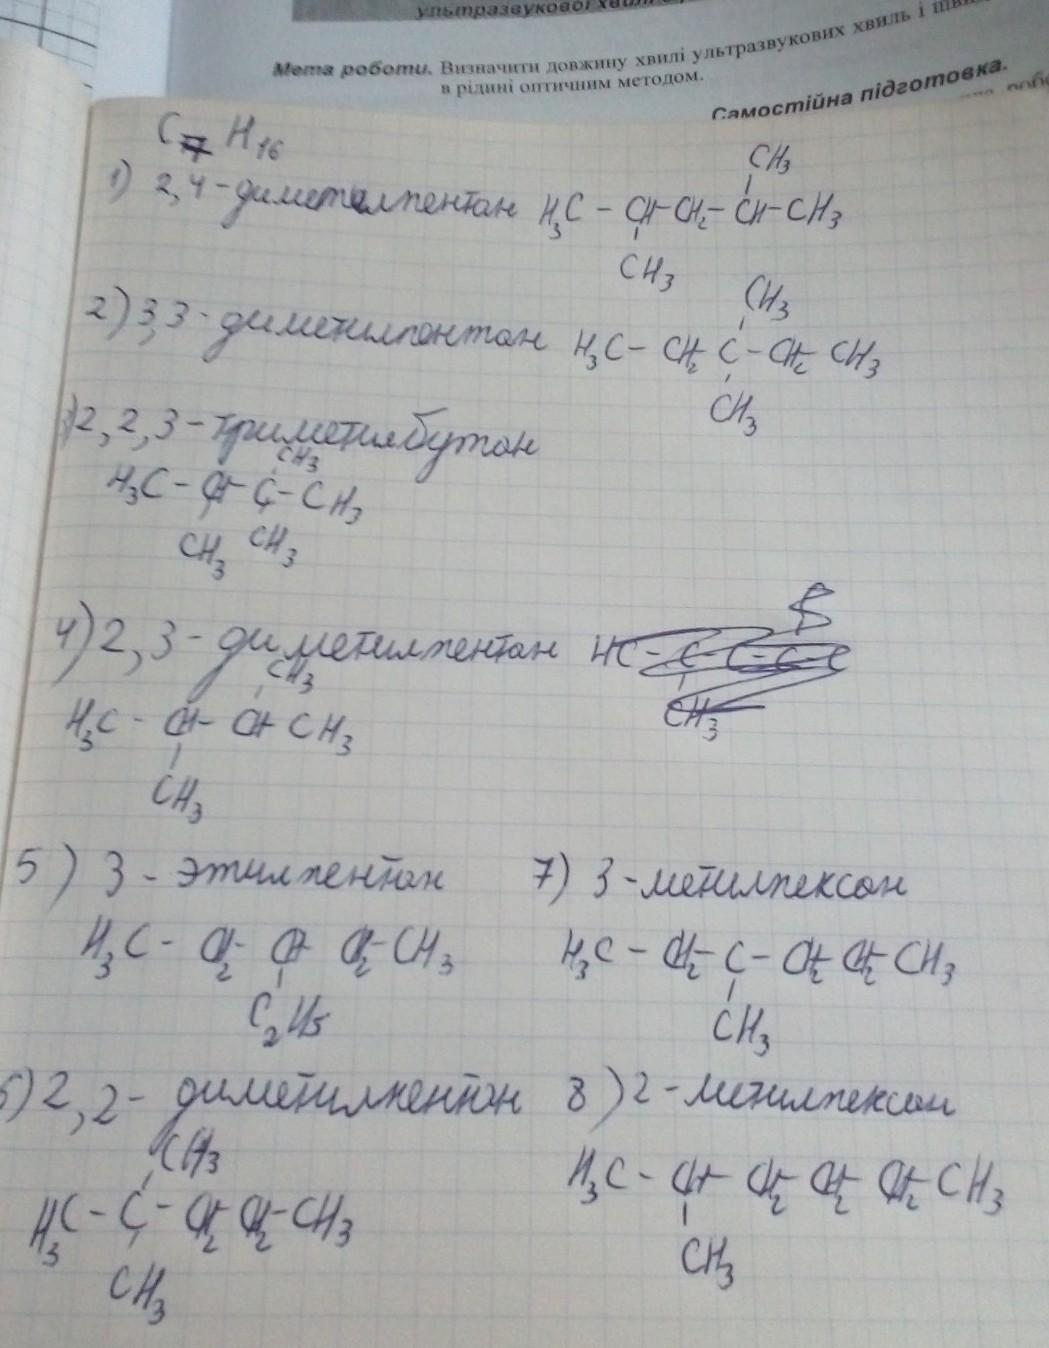 ультразвукової хвилі
Мета роботи. Визначити довжину хвилі ультразвукових хвиль і
в рідині оптичним методом.
Самостійна підготовка.
C7 H16
1) 2,4-диметилпентан H3C - CH-CH2-CH-CH3
CH3
CH3
2) 3,3-диметилпентан H3C- CH2 C - CH2 CH3
CH3
CH3
3) 2,2,3-триметилбутан
CH3
H3C - CH C - CH3
CH3 CH3
4) 2,3-диметилпентан
CH3
H3C - CH- CH CH3
CH3
5) 3-этилпентан
H3C - CH2- CH CH2-CH3
C2H5
6) 2,2-диметилпентан
CH3
H3C - C - CH2 CH2-CH3
CH3
7) 3-метилгексан
H3C - CH2- C - CH2 CH2 CH3
CH3
8) 2-метилгексан
H3C - CH CH2 CH2 CH2 CH3
CH3